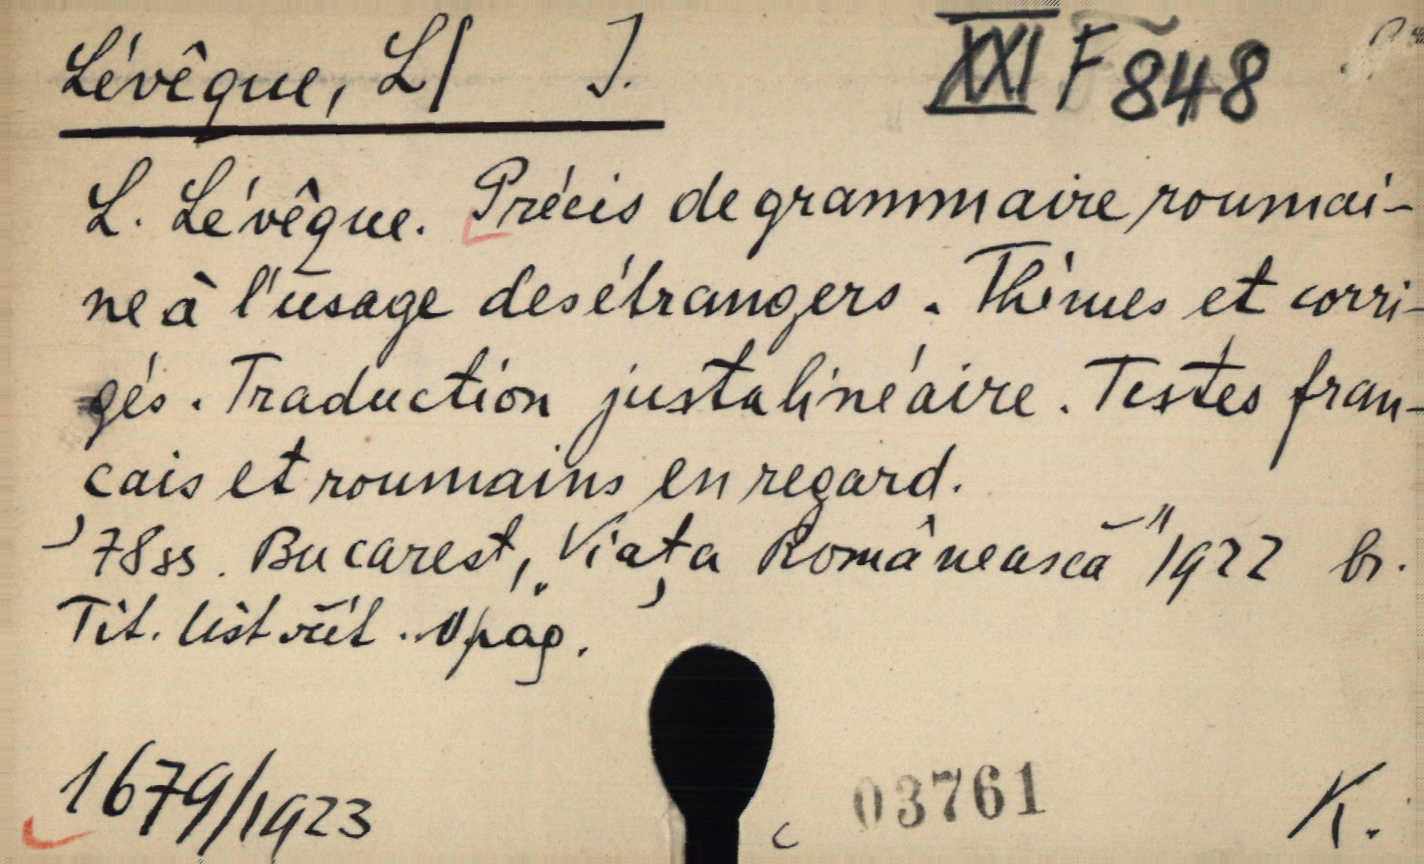 Lévêque, L/ J. XXI F 848
L. Lévêque. Précis de grammaire roumai-
ne à l'usage des étrangers. Thèmes et corri-
gés. Traduction justalinéaire. Testes fran-
cais et roumains en regard.
78 ss. Bucarest, „Viața Românească" 1922 br.
Tit.
1679/1923 03761 K.